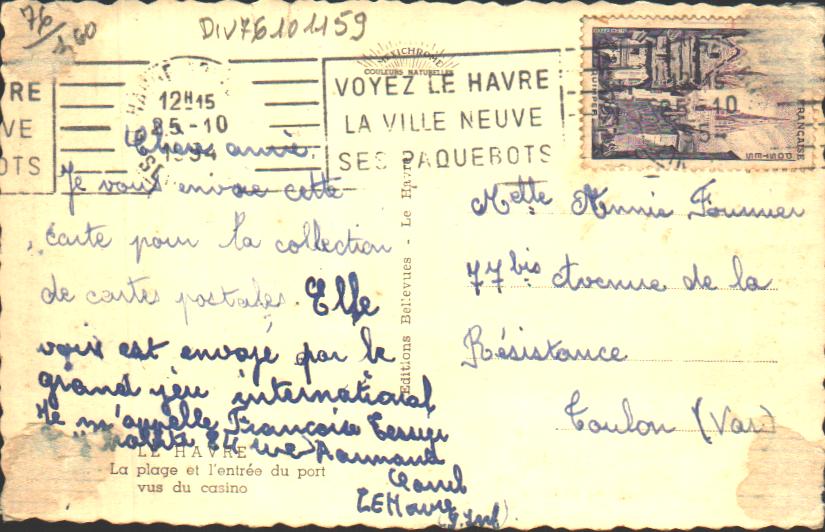 76/360
DIV76101159
MEXICHROME
COULEURS NATURELLES
RE
VE
OTS
12H15
25-10
1954
VOYEZ LE HAVRE
LA VILLE NEUVE
SES PAQUEBOTS
FRANÇAISE
POSTES
15
25-10
Chère amie.
Je vous envoie cette
carte pour la collection
de cartes postales. Elle
vous est envoyé par le
grand jeu international
Je m'appelle Françoise
J'habite 84 rue
LE Havre
(S. Inf)
Editions Bellevues - Le Havre
Melle Annie Fournier
77 bis Avenue de la
Résistance
Toulon (Var)
LE HAVRE
La plage et l'entrée du port
vus du casino